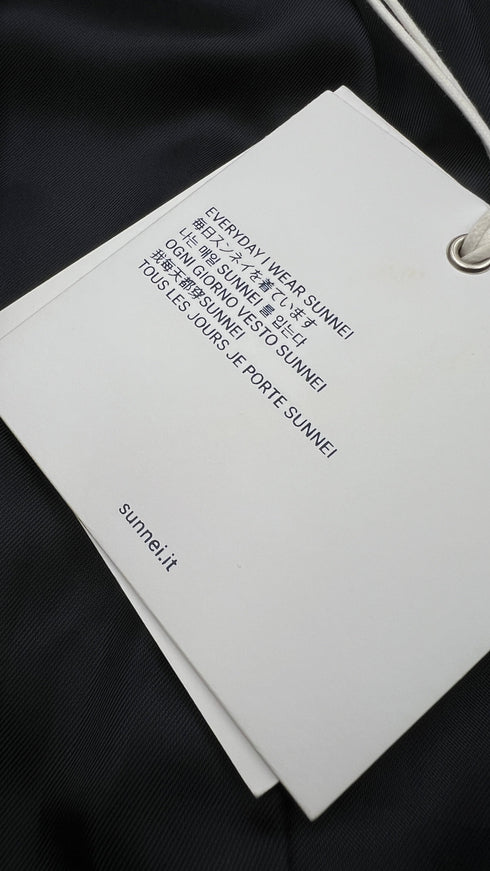 EVERYDAY I WEAR SUNNEI
毎日スンネイを着ています
나는 매일 SUNNEI 를 입는다
OGNI GIORNO VESTO SUNNEI
我每天都穿SUNNEI
TOUS LES JOURS JE PORTE SUNNEI
sunnei.it